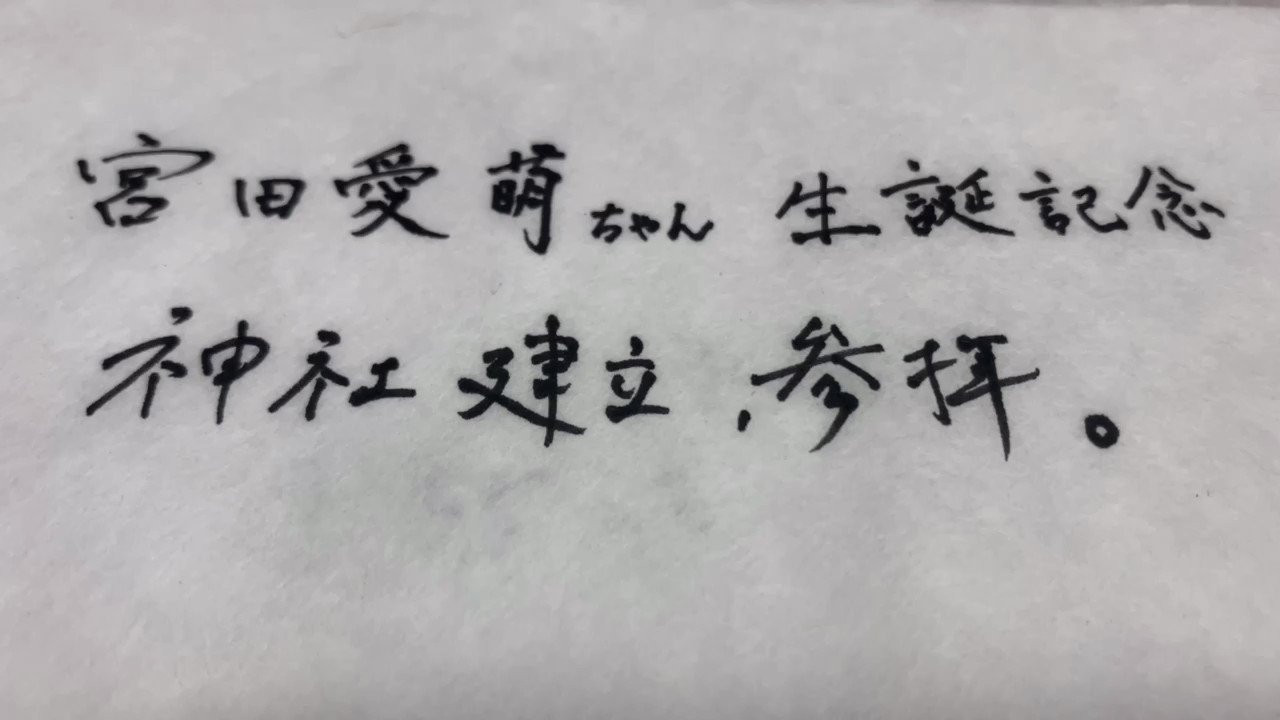 宮田愛萌ちゃん 生誕記念
神社建立、参拝。